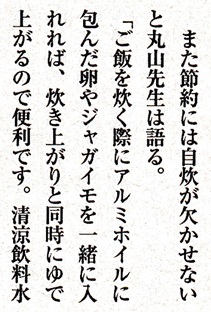 また節約には自炊が欠かせない
と丸山先生は語る。
「ご飯を炊く際にアルミホイルに
包んだ卵やジャガイモを一緒に入
れれば、炊き上がりと同時にゆで
上がるので便利です。清涼飲料水